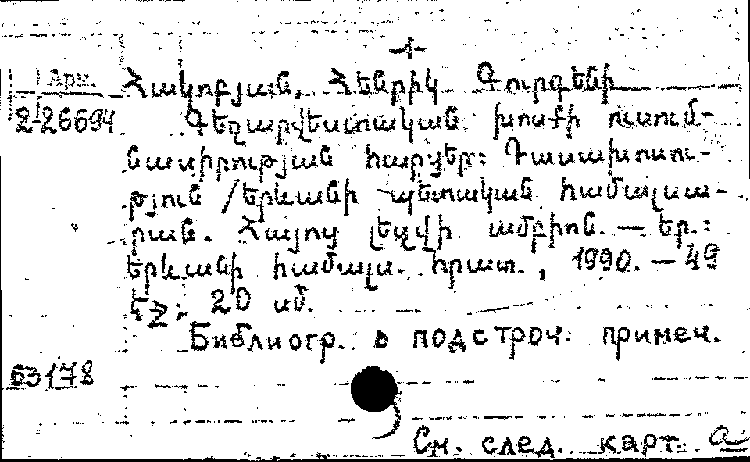 Арм.
2-26694
Հակոբյան, Հենրիկ Գուրգենի
Գեղարվեստական խոսքի ուսում-
նասիրության հարցեր: Դասախոսու-
թյուն / Երևանի պետական համալսա-
րան. Հայոց լեզվի ամբիոն. — Եր.:
Երևանի համալս. հրատ., 1990. — 49
էջ; 20 սմ.
Библиогр. в подстроч. примеч.
63178
См. след. карт.